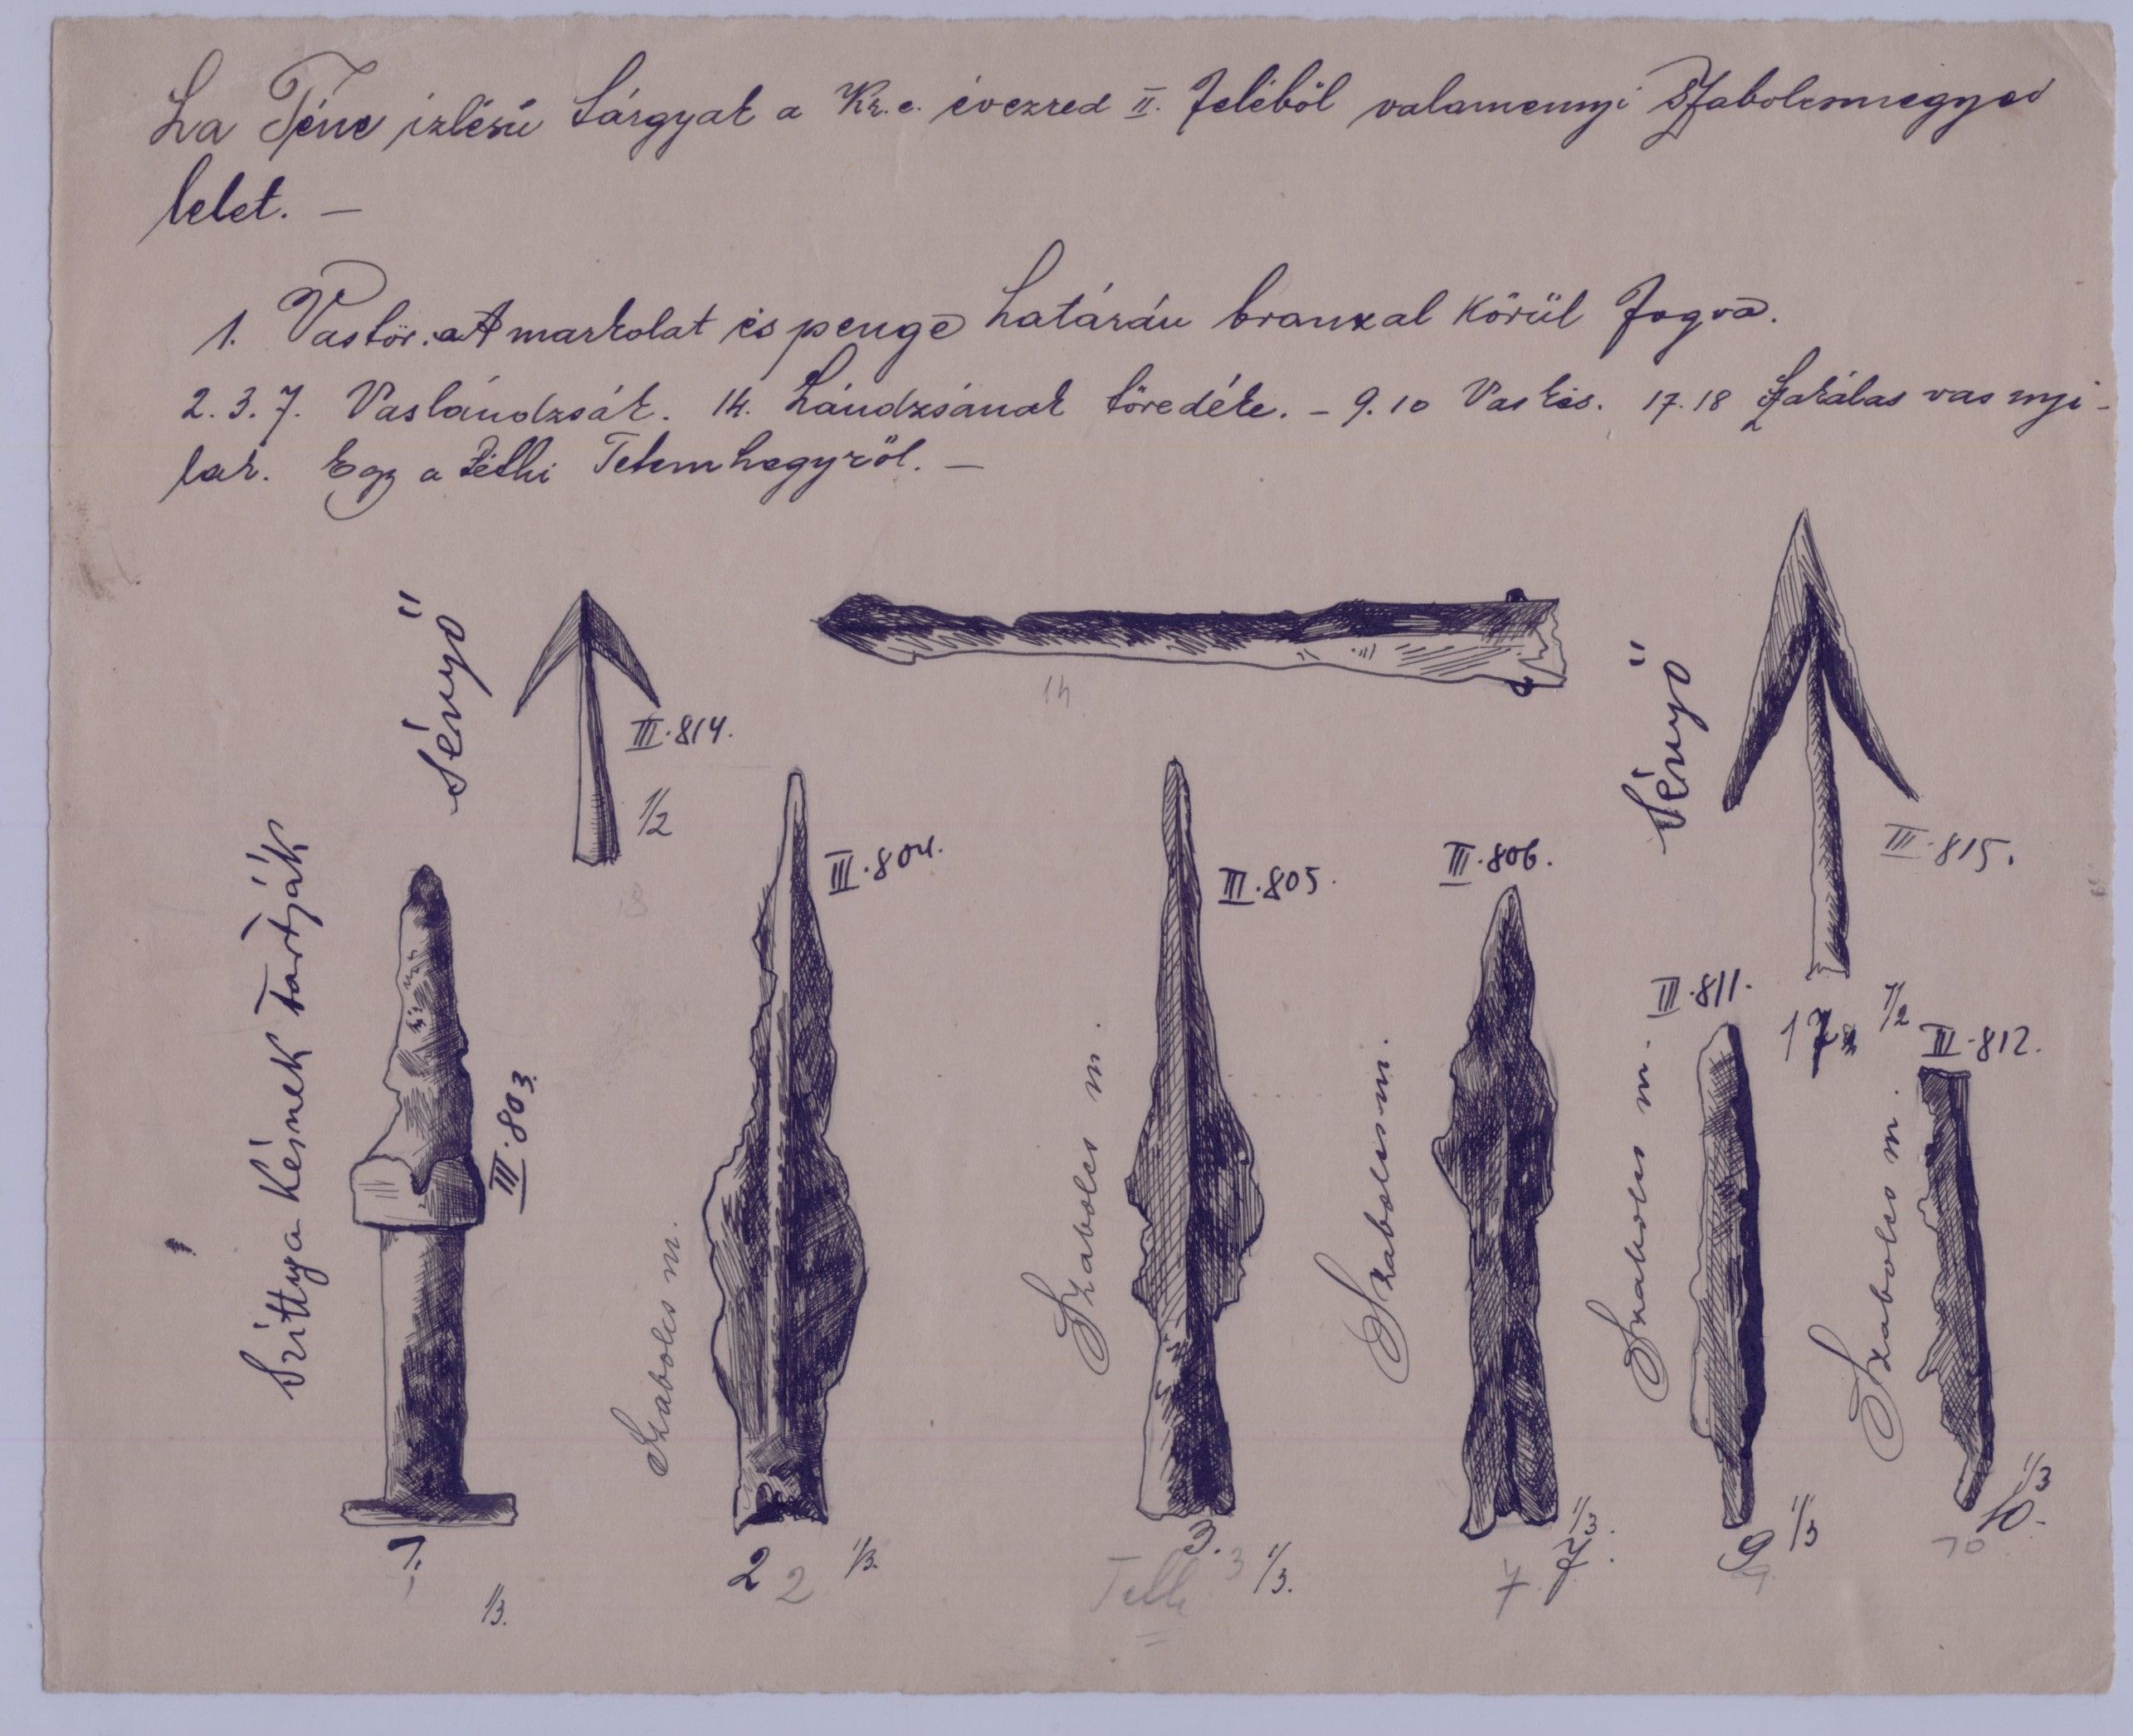 La Téne izlésü tárgyak a Kr. e. évezred II. feléböl valamennyi Szabolcsmegyei
lelet. —
1. Vastör. a A markolat és penge határán bronzal körül fogva.
2. 3. 7. Vaslándzsák. 14. Lándzsának töredéke. – 9. 10 Vaskés. 17. 18 Szakálas vas nyi-
lak. Egy a Téthi Telemhegyröl. —
Sényő
III. 814.
1/2
18
14
Sényő
III. 815.
17. 1/2
Szíttya késnek tartják
III. 803.
1.
1/3.
III. 804.
Szabolcs m.
2 2 1/3.
III. 805.
Szabolcs m.
3. 3 1/3.
III. 806.
Szabolcs m.
1/3.
7 7.
III. 811.
Szabolcs m.
9 1/3
9
III. 812.
Szabolcs m.
1/3
10.
10